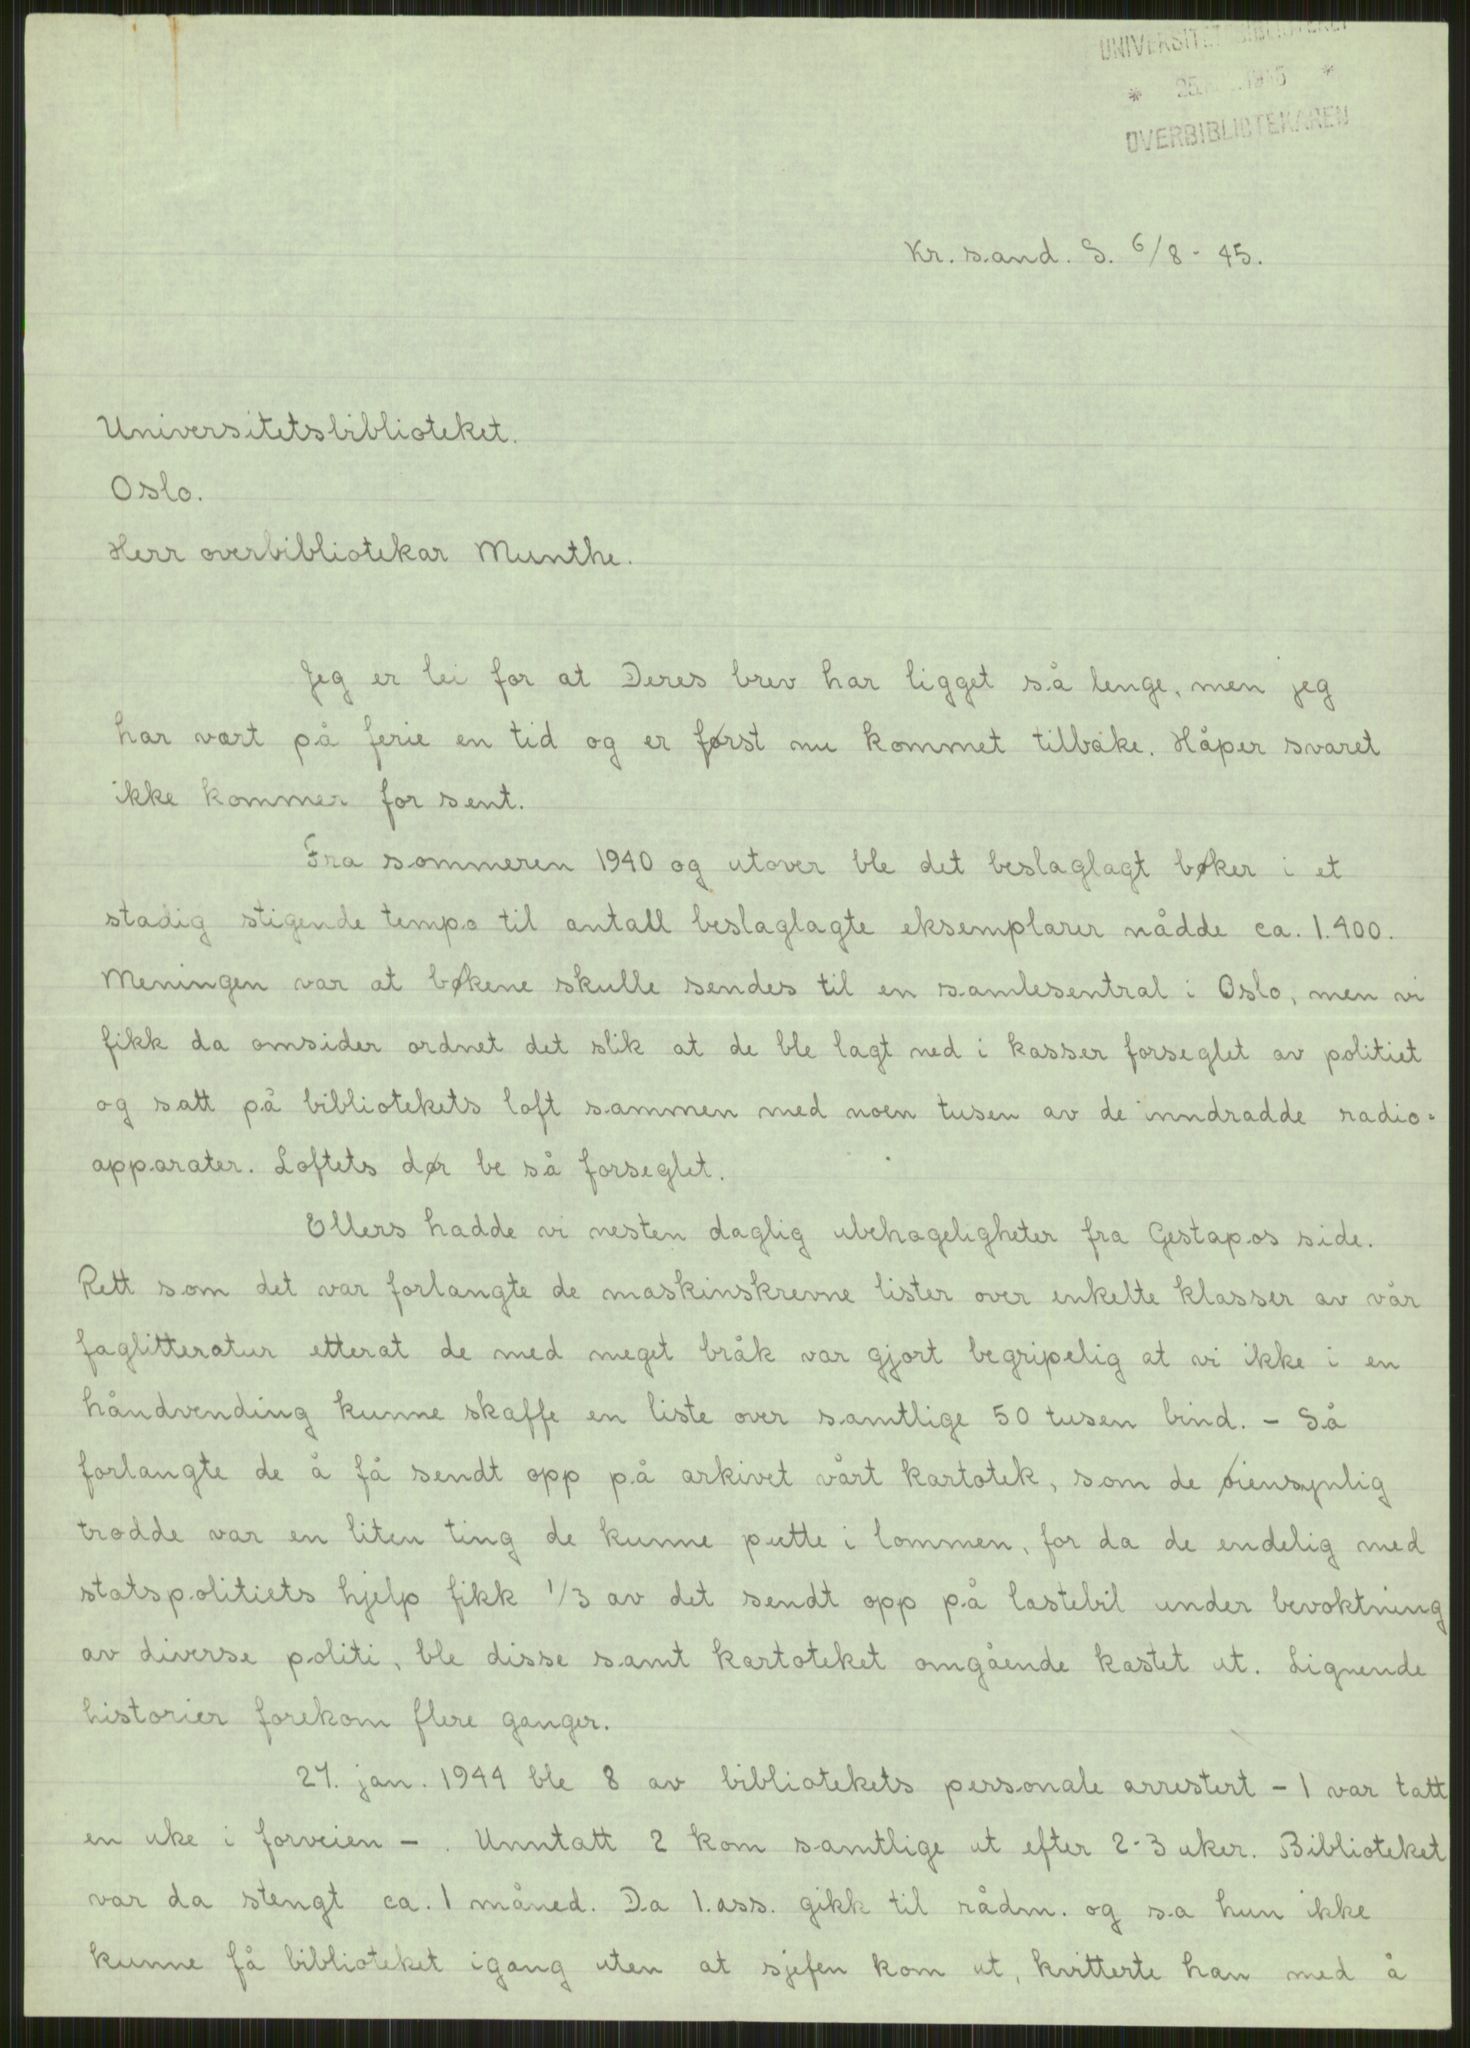 UNIVERSITETSBIBLIOTEKET
* 25. 1945 *
OVERBIBLIOTEKAREN
Kr.sand. S. 6/8 - 45.
Universitetsbiblioteket.
Oslo.
Herr overbibliotekar Munthe.
Jeg er lei for at Deres brev har ligget så lenge, men jeg
har vært på ferie en tid og er først nu kommet tilbake. Håper svaret
ikke kommer for sent.
Fra sommeren 1940 og utover ble det beslaglagt bøker i et
stadig stigende tempo til antall beslaglagte eksemplarer nådde ca. 1.400.
Meningen var at bøkene skulle sendes til en samlesentral i Oslo, men vi
fikk da omsider ordnet det slik at de ble lagt ned i kasser forseglet av politiet
og satt på bibliotekets loft sammen med noen tusen av de inndradde radio-
apparater. Loftets dør be så forseglet.
Ellers hadde vi nesten daglig ubehageligheter fra Gestapos side.
Rett som det var forlangte de maskinskrevne lister over enkelte klasser av vår
faglitteratur etterat de med meget bråk var gjort begripelig at vi ikke i en
håndvending kunne skaffe en liste over samtlige 50 tusen bind. - Så
forlangte de å få sendt opp på arkivet vårt kartotek, som de øiensynlig
trodde var en liten ting de kunne putte i lommen, for da de endelig med
statspolitiets hjelp fikk 1/3 av det sendt opp på lastebil under bevoktning
av diverse politi, ble disse samt kartoteket omgående kastet ut. Lignende
historier forekom flere ganger.
27. jan. 1944 ble 8 av bibliotekets personale arrestert - 1 var tatt
en uke i forveien - . Unntatt 2 kom samtlige ut efter 2-3 uker. Biblioteket
var da stengt ca. 1 måned. Da 1.ass. gikk til rådm. og sa hun ikke
kunne få biblioteket igang uten at sjefen kom ut, kvitterte han med å